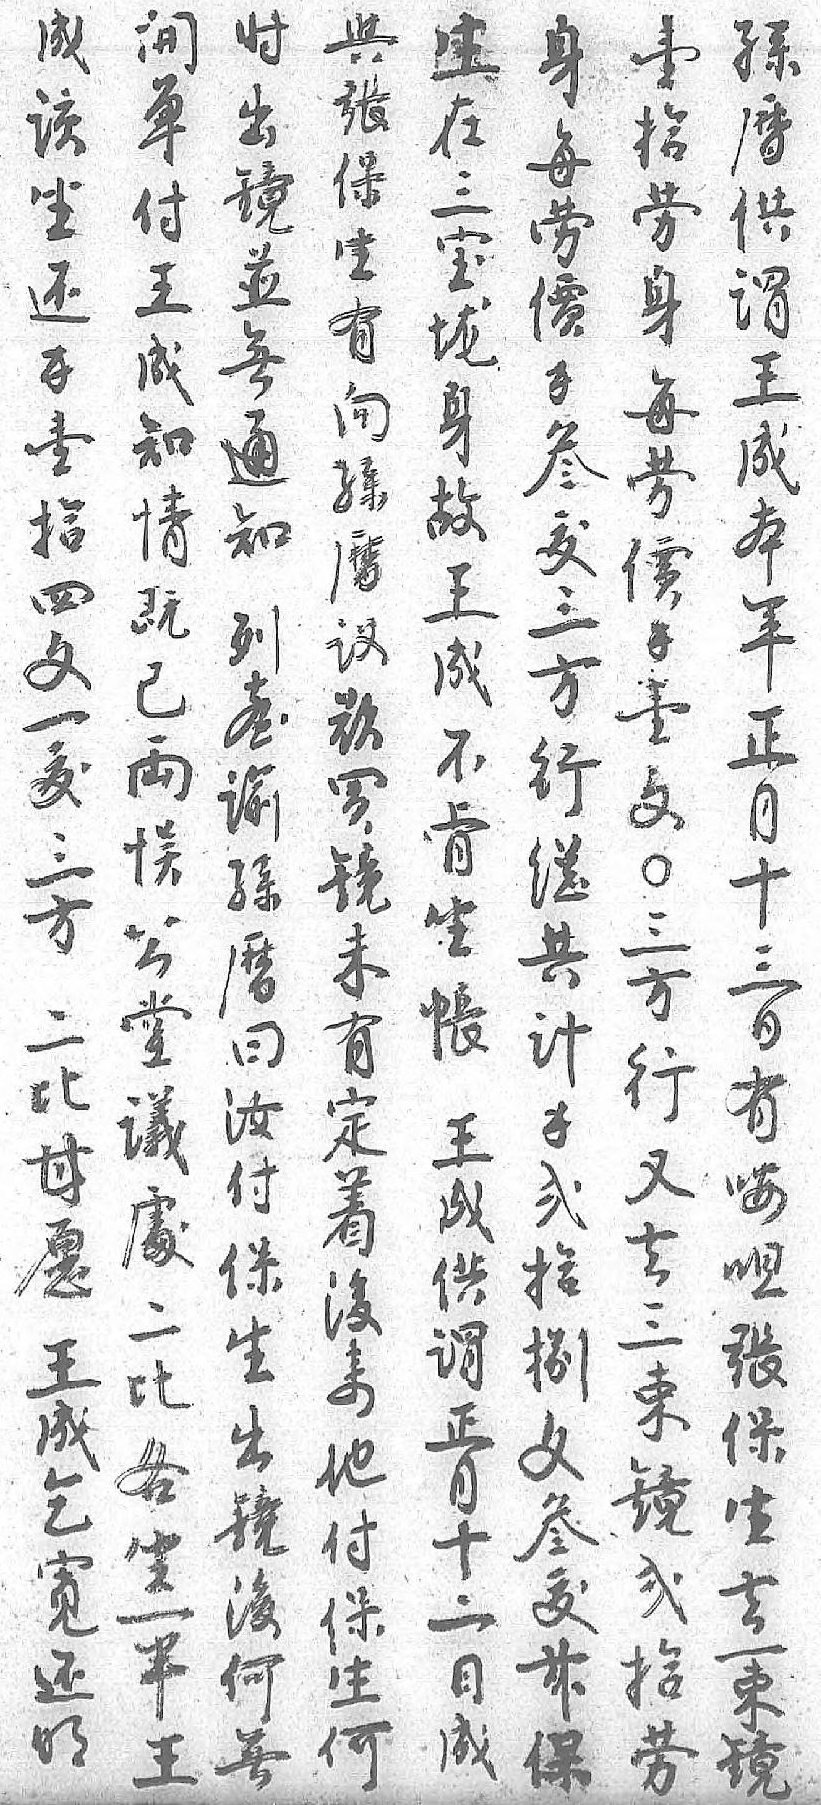 孫曆供謂王成本年正月十三日有嗳呾張保生去一束鏡
壹拾劳身每劳價銀壹文〇三方行又去三束鏡弍拾劳
身每劳價銀叁文三方行繼共計銀弍拾捌文叁文兹保
生在三宝垅身故王成不肯坐帳 王成供謂正月十二日成
與張保生有向孫曆议欲買鏡未有定着後来他付保生何
时出鏡並無通知 列台諭孫曆曰汝付保生出鏡後何無
開单付王成知情既已両悞公堂議處二比各坐一半王
成該坐还銀壹拾四文一文三方 二比甘愿 王成乞寬还明